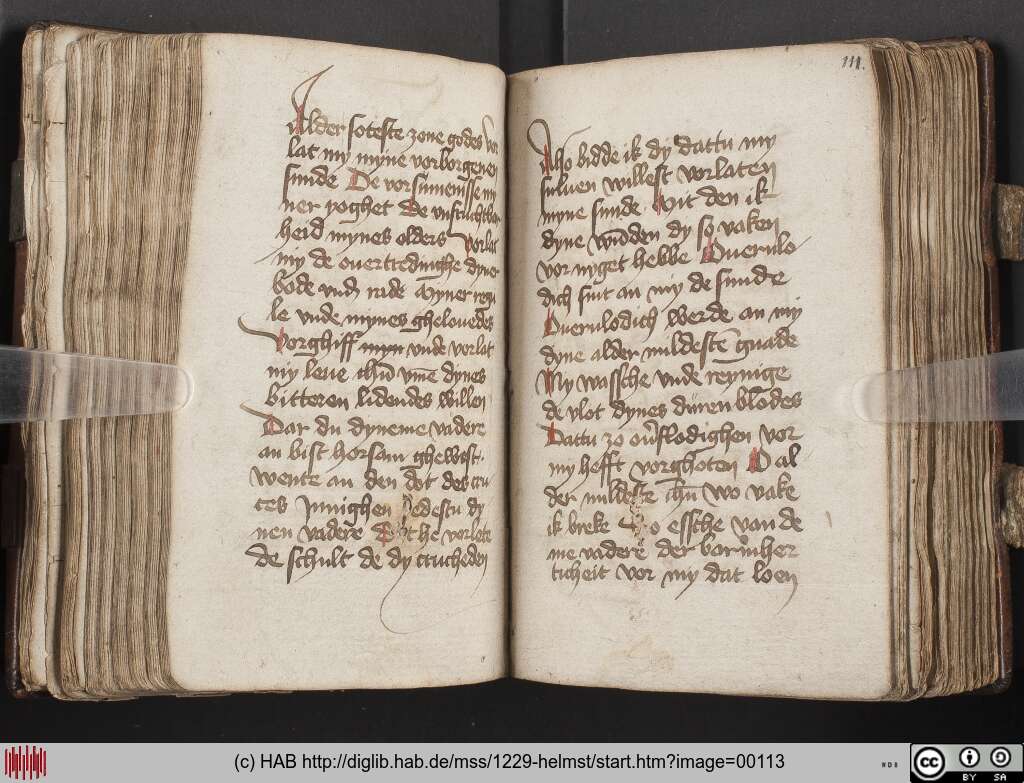 Alder soteste zone godes vor
lat my myne vorborgenen
sunde De vorsumenisse my
ner yoghet De vnfruchtba
heid mynes olders Vorlat
my de ouertredinghe dyner
bode vnd rade Myner regu
le vnde mynes ghelouedes
Vorghiff myn vnde vorlat
my leue ihū vm̄e dynes
bitteren lidendes willen
Dar du dyneme vadere
an bist horsam ghewest
wente an den dot des cru
ces Innighen bedestu dy
nen vadere Dat he vorlete
de schult de dy crucheden
111.
Also bidde ik dy dattu my
suluen willest vorlaten
myne sunde wit den ik
dyne wūden dy so vaken
vor nyget hebbe Ouerulo
dich sint an my de sunde
Ouerulodich werde an my
dyne alder mildestē gnade
My wassche vnde reynige
de vlot dynes düren blodes
Dattu zo ou̇flodighen vor
my hefft vorghoten O al
der mildeste ihū wo vake
ik breke So essche van de
me vadere der barmher
ticheit vor my dat loen
(c) HAB http://diglib.hab.de/mss/1229-helmst/start.htm?image=00113
WDB
cc BY SA